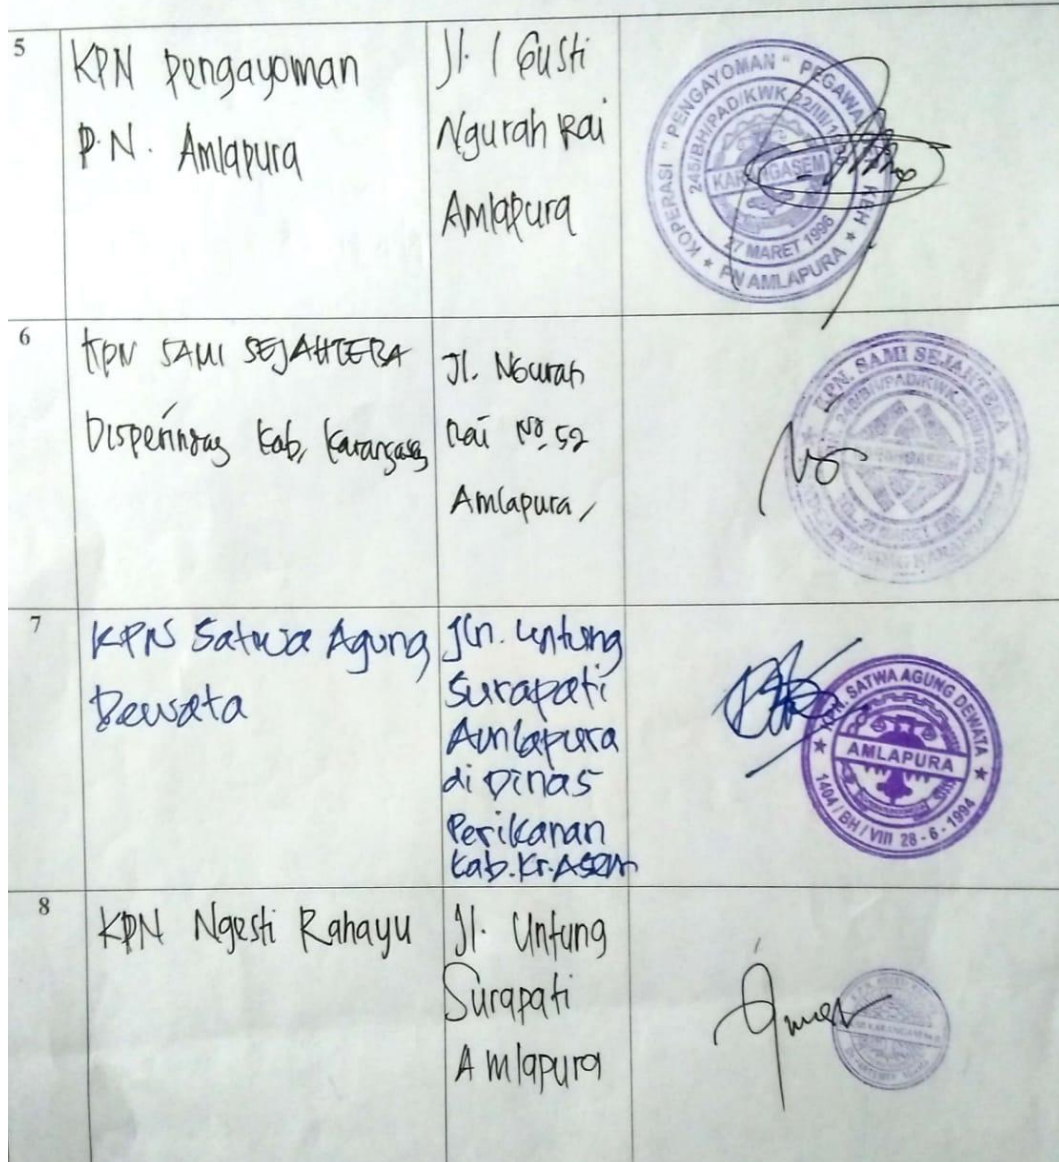 5
KPN Pengayoman
P.N. Amlapura
Jl. I Gusti
Ngurah Rai
Amlapura
KOPERASI "PENGAYOMAN" PEGAWAI
KEH
★ PN AMLAPURA ★
245/BH/PAD/KWK.22/III/1
KARANGASEM
27 MARET 1996
6
KPN SAMI SEJAHTERA
Disperindag Kab, Karangasem
Jl. Ngurah
Rai No 52
Amlapura,
KPN. SAMI SEJAHTERA
7
KPN Satwa Agung
Dewata
Jln. Untung
Surapati
Amlapura
di Dinas
Perikanan
Kab.Kr.Asem
KPN. SATWA AGUNG DEWATA
AMLAPURA
★ 1404 / BH / VIII 28 - 6 - 1994 ★
8
KPN Ngesti Rahayu
Jl. Untung
Surapati
Amlapura